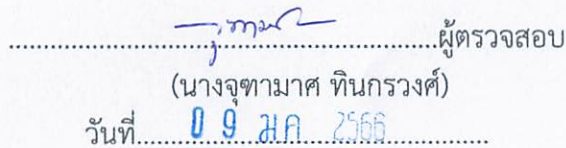 ........................................ผู้ตรวจสอบ
(นางจุฑามาศ ทินกรวงศ์)
วันที่.....09 มค 2566....................